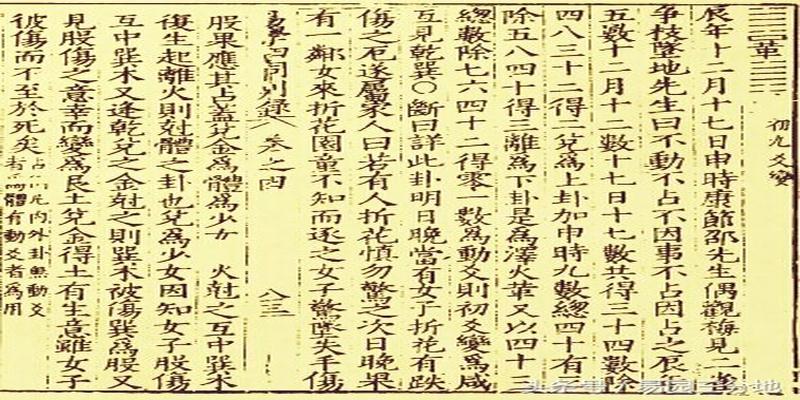 革 初九爻變
辰年十二月十七日申時康節邵先生偶觀梅見二雀
爭枝墜地先生曰不動不占不因事不占因占之辰年
五數十二月十二數十七日十七數共得三十四數除
四八三十二得二兌為上卦加申時九數總四十有三
除五八四十得三離為下卦是為澤火革又以四十三
總數除七六四十二得零一數為動爻則初爻變為咸
互見乾巽〇斷曰詳此卦明日晚當有女子折花有跌
傷之厄遂屬家人曰若有人折花慎勿驚之次日晚果
有一鄰女來折花園童不知而逐之女子驚墜失手傷
易學四同別錄 卷之四 八三
股果應其占蓋兌金為體為少女 火尅之互中巽木
復生起離火則尅體之卦也兌為少女因知女子股傷
互中巽木又逢乾兌之金尅之則巽木被傷巽為股又
見股傷之意幸而變為艮土兌金得土有生意雖女子
彼傷而不至於死矣
占凡內外卦無動爻
者為體有動爻者為用
头条号 易园三分地